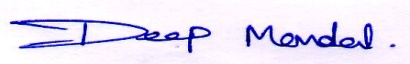 Deep Mondal.